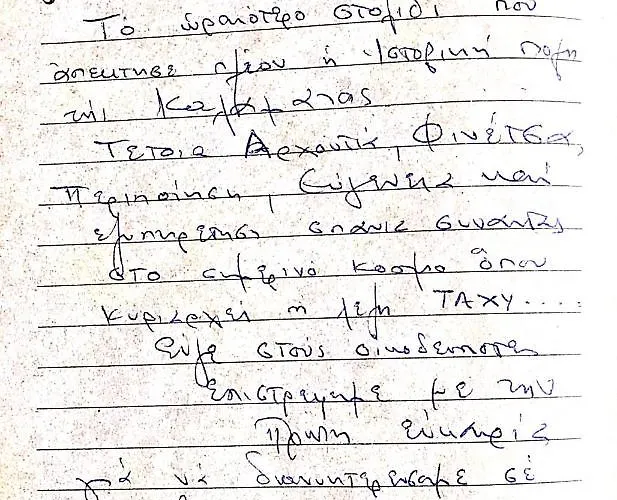 Τό ὡραιότερο στολίδι που
ἀπέκτησε πλέον ἡ Ἱστορική πόλη
τῆς Καλαμάτας
Τέτοια Αρχοντιά, Φινέτσα,
Περιποίηση, Εὐγένεια καί
εξυπηρέτηση σπάνια συναντᾶς
στο σημερινό κόσμο ὅπου
κυριαρχεί η λέξη ΤΑΧΥ....
Εὖγε στους οικοδεσπότες
Επιστρέψαμε με την
Πρώτη εὐκαιρία
γιά νά διανυκτερεύσομε σέ